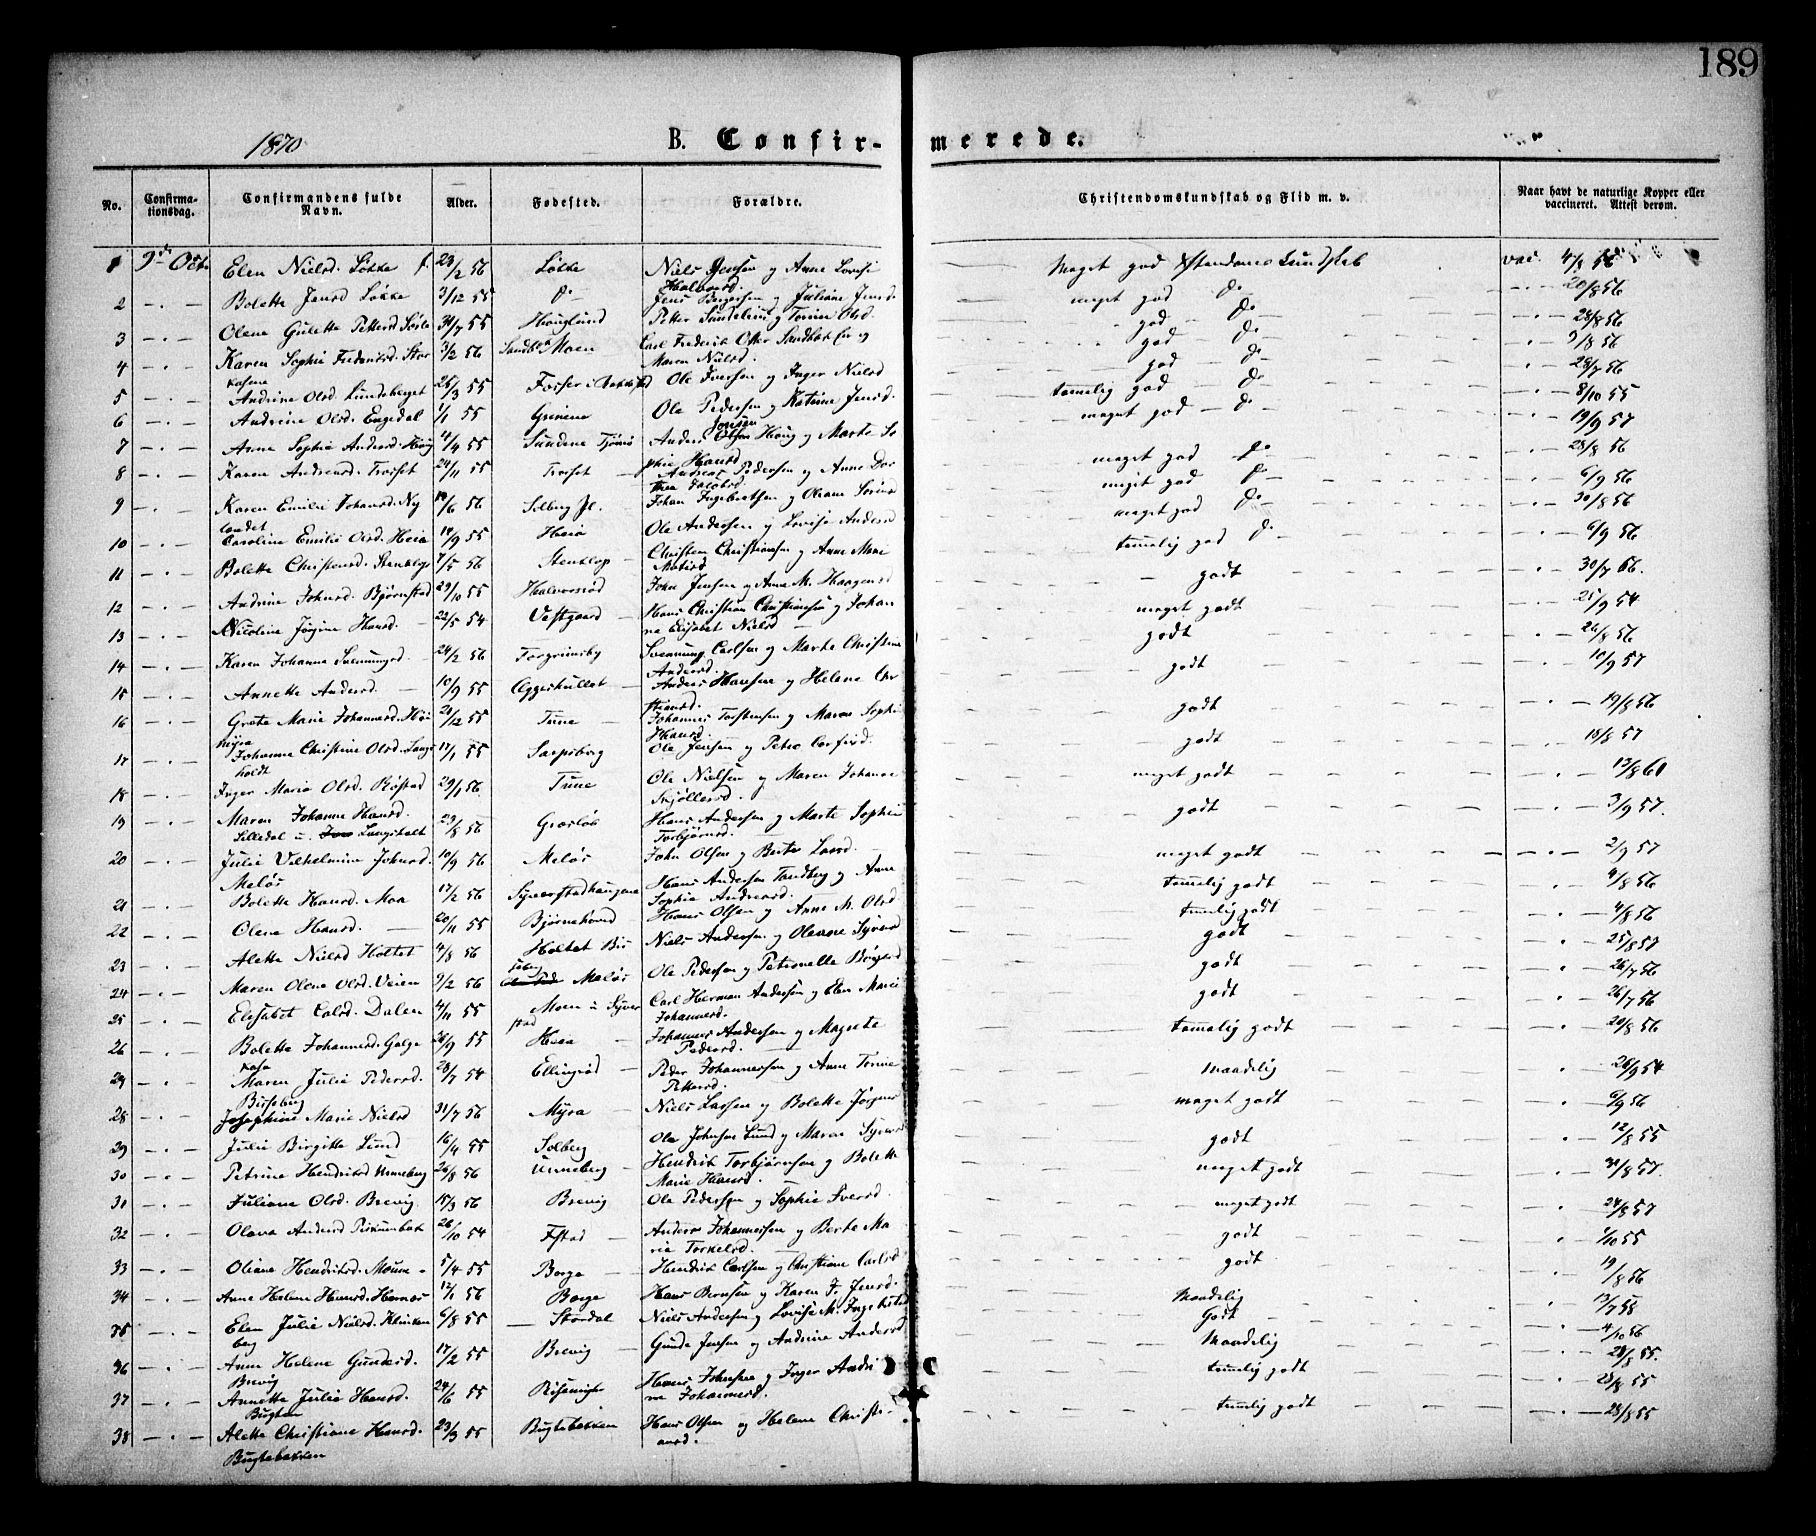 189
1870 B. Confir- merede.
No. Confirma- tionsdag. Confirmandens fulde Navn. Alder. Fødested. Forældre. Christendomskundskab og Flid m. v. Naar havt de naturlige Kopper eller vaccineret. Attest derom.
1 9de Octr Elen Nielsd. Løkke f. 23/2 56 Løkke Niels Jensen og Anne Lovise Halvorsd Meget god Xstendoms Kundskab vac. 4/8 56
2 - . - Bolette Jensd Løkke 3/12 55 Do Jens Bryersen og Juliane Jensd. meget god Do 20/8 56
3 - . - Olene Gulette Petters 7 55 Hauglund Petter og Torine Olsd. god - Do 28/8 56
4 - . - Karen Sophie Frederiksd. Stor kasene 3/2 56 Moen Carl Frederik Otter og Maren Nielsd. god - Do 9/8 56
god - Do 29/7 56
5 - . - Andrine Olsd. Lundeberget 25/3 55 Fosser i Ole Iversen og Inger Nielsd temelig god - Do 8/10 55
6 - . - Andrine Olsd. Engedal 1/1 55 Grinene Ole Pedersen og Katrine Jensd. meget god - Do 19/9 57
7 - . - Anne Sophie Andersd. Haug 4 55 Sundene Tjømø Anders Olsen Haug og Marte So phie Hansd meget god Do 28/8 56
8 - . - Karen Andreasd. Troset 24/11 55 Troset - Andreas Pedersen og Anne Dor thea Jakobsd. meget god Do 6/9 56
9 - . - Karen Emilie Johansd. Ny landet 6 56 Solberg Pl. Johan Ingebretsen og Oleane Sørensd meget god Do 30/8 56
10 - . - Caroline Emilie Olsd. Heia 14/9 55 Heia Ole Andersen og Lovise Andersd temelig god Do 6/9 56
11 - . - Bolette Christensd. Stenklops 7/5 56 Stenklop Christen Christiansen og Anne Marie - godt 30/7 66.
12 - . - Andrine Johnsd. Bjørnstad 29/10 55 Halvorsrød John Jensen og Anne M. Haagensd meget godt 25/9 54
13 - . - Nicoline Jørgine Hansd. - 22/5 54 Vestgaard Hans Christian Christiansen og Johan ne Elisabet Nielsd godt 26/8 56
14 - . - Karen Johanne Svenningsd. 24/2 56 Torgrimsby Svenning Carlsen og Marte Christine Andersd. godt 10/9 57
15 - . - Annette Andersd. - 10/9 55 Aggerhullet Anders Hansen og Helene Chr stiansd. godt 19/8 56
16 - . - Grete Marie Johannesd. Høi myra 20/12 55 Tune - Johannes Torstensen og Maren Sophie Hansd. godt 18/8 57
17 - . - Johanne Christine Olsd. Lange holdt 17/1 55 Sarpsborg Ole Jensen og Petra meget godt 13/8 60
18 - . - Inger Marie Olsd. Røstad 29/1 56. Tune Ole Nielsen og Maren Johanne Skjøllersd. godt 3/9 57.
19 - . - Maren Johanne Hansd. Silledal u. Langeholt 23/8 56 Græsløk Hans Andersen og Marte Sophie Torbjørnsd. meget godt 2/9 57
20 - . - Julie Vilhelmine Johnsd. Meløs 10/9 56 Meløs John Olsen og Berte Larsd. temelig godt 4/8 56
21 - . - Bolette Hansd. Moa 17/2 56 Syverstadhaugene Hans Andersen Tandberg og Anne Sophie Andreasd. temelig godt 4/8 56
22 - . - Olene Hansd. - 20/11 55 Bjørnehoved Hans Olsen og Anne M. Olsd godt 25/8 57
23 - . - Alette Nielsd Holtet 4/8 56 Holtet Niels Andersen og Oleane Syversd godt 26/7 56
24 - . - Maren Olene Olsd. Veien 9/2 56 Meløs Ole Pedersen og Petronelle godt 26/7 56
25 - . - Elisabet Carlsd. Dalen 4/11 55 Moen u Syver stad Carl Herman Andersen og Elen Marie Johannesd. temelig godt 20/8 56
26 - . - Bolette Johannesd. Galge kasa 26/9 55 Heia - Johannes Andersen og Magnete Pedersd. maadelig 26/9 54
27 - . - Maren Julie Pedersd. Birkebæg 28/7 54 Ellingrød - Peder Johannessen og Anne Torine Pettersd. meget godt 6/9 56
28 - . - Josephine Marie Nielsd 31/7 56 Myra - Niels Larsen og Bolette Jørgensd godt 12/8 55
29 - . - Julie Birgitte Lund 16/4 55 Solberg Ole Johnsen Lund og Maren Syversd meget godt /8 57.
30 - . - Petrine Hendriksd Unneberg 26/8 56 Unneberg - Hendrik Torbjørnsen og Bolette Marie Hansd. meget godt 24/8 57
31 - . - Juliane Olsd. Brevig 15/3 56 Brevig Ole Pedersen og Sophie Iversd. godt 1/10 55
32 - . - Olava Andersd 26/10 54 Istad Anders Johannessen og Berte Ma rie Torkelsd. godt 19/8 56
33 - . - Oliane Hendriksd. Moum - 5/4 55 Borge - Hendrik Carlsen og Christiane Carlsd Maadelig 13/7 58
34 - . - Anne Helene Hansd. Hornæs 12/1 56 Borge Hans Bernsen og Karen J. Jensd. Godt 4/10 56
35 - . - Elen Julie Nielsd. Klinken berg 6/8 55 - Stordal Niels Andersen og Lovise M. Ingebretsd Maadelig 28/8 55.
36 - . - Anne Helene Gundersd. Brevig 17/2 55 Brevig Gunder Jensen og Andrine Andersd temelig godt 23/8 55
37 - . - Annette Julie Hansd. Bugten 24/6 55 Hans Johnsen og Inger Andri ne Johannesd. temelig godt 28/8 55
38 - . - Alette Christiane Hansd. Bugtebakken 23/3 55 Bugtebakken Hans Olsen og Helene Christi- ansd.